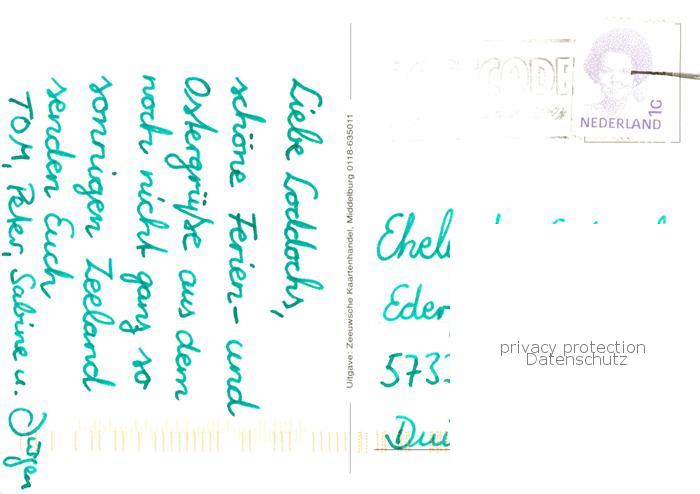 Liebe Loddochs,
schöne Ferien- und
Ostergrüße aus dem
noch nicht ganz so
sonnigen Zeeland
senden Euch
TOM, Peter, Sabine u. Jürgen
Uitgave: Zeeuwsche Kaartenhandel, Middelburg 0118-635011
POSTCODE
NEDERLAND
1G
Ehel
Eder
573
privacy protection
Datenschutz